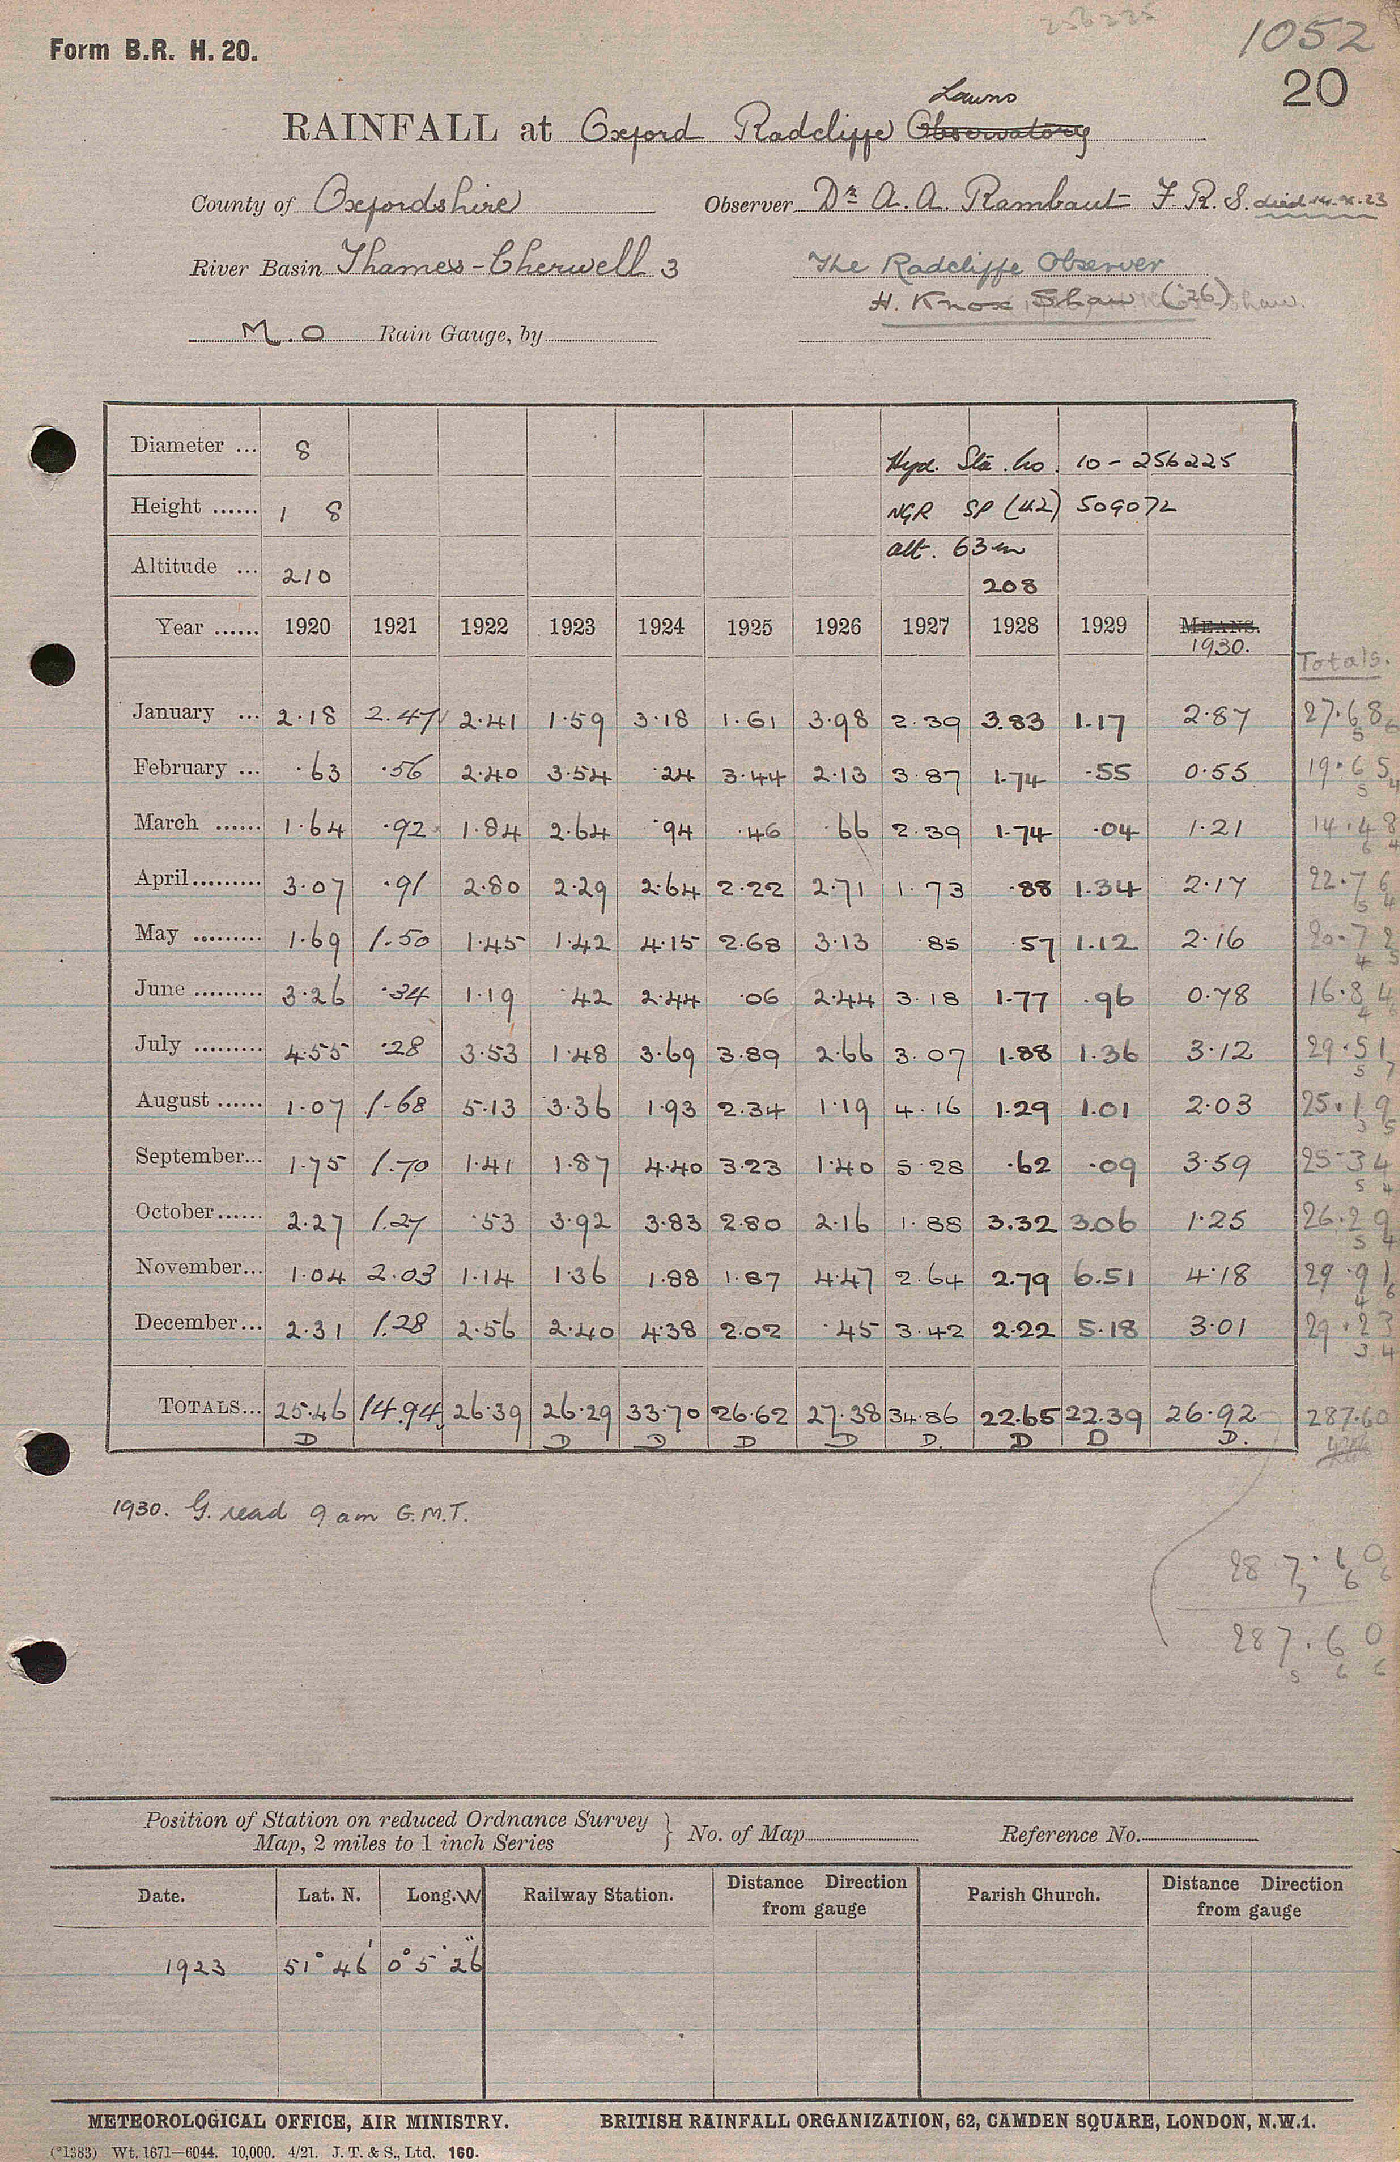 256225
1052
Form B.R. H. 20.
20
Lawns
RAINFALL at Oxford Radcliffe Observatory
County of Oxfordshire Observer Dr A. A. Rambaut F R. S. died 14.X.23
River Basin Thames-Cherwell 3 The Radcliffe Observer
H. Knox Shaw ('26)
M.O Rain Gauge, by
Diameter ... 8 Hyd. Sta. No. 10-256225
Height ...... 1 8 NGR SP (42) 509072
Altitude ... 210 alt. 63m
208
Year ...... 1920 1921 1922 1923 1924 1925 1926 1927 1928 1929 MEANS.
1930. Totals.
January ... 2·18 2.47 2·41 1·59 3·18 1·61 3·98 2·39 3.83 1·17 2·87 27·68
February ... ·63 ·56 2·40 3·54 ·24 3·44 2·13 3·87 1·74 ·55 0·55 19·65
March ...... 1·64 ·92 1·84 2·64 ·94 ·46 ·66 2·39 1·74 ·04 1·21 14·48
April......... 3·07 ·91 2·80 2·29 2·64 2·22 2·71 1·73 ·88 1·34 2·17 22·76
May ......... 1·69 1.50 1·45 1·42 4·15 2·68 3·13 85 ·57 1·12 2·16 20·72
June ......... 3·26 ·34 1·19 ·42 2·44 ·06 2·44 3·18 1·77 ·96 0·78 16·84
July ......... 4·55 ·28 3·53 1·48 3·69 3·89 2·66 3·07 1·88 1·36 3·12 29·51
August ...... 1·07 1·68 5·13 3·36 1·93 2·34 1·19 4·16 1·29 1·01 2·03 25·19
September... 1·75 1.70 1·41 1·87 4·40 3·23 1·40 5·28 ·62 ·09 3·59 25·34
October...... 2·27 1.27 ·53 3·92 3·83 2·80 2·16 1·88 3.32 3.06 1·25 26·29
November... 1·04 2·03 1·14 1·36 1·88 1·87 4·47 2·64 2·79 6·51 4·18 29·91
December... 2·31 1.28 2·56 2·40 4·38 2·02 ·45 3·42 2·22 5·18 3·01 29·23
TOTALS... 25·46 14.94 26·39 26·29 33·70 26·62 27·38 34·86 22·65 22·39 26·92 287·60
D D D D D D. D D D.
1930. G. read 9 am G.M.T.
287·60
287·60
Position of Station on reduced Ordnance Survey
Map, 2 miles to 1 inch Series } No. of Map Reference No.
Date. Lat. N. Long. W Railway Station. Distance from gauge Direction Parish Church. Distance from gauge Direction
1923 51° 46' 0° 5' 26"
METEOROLOGICAL OFFICE, AIR MINISTRY. BRITISH RAINFALL ORGANIZATION, 62, CAMDEN SQUARE, LONDON, N.W.1.
(*1383) Wt. 1671—6044. 10,000. 4/21. J. T. & S., Ltd. 160.